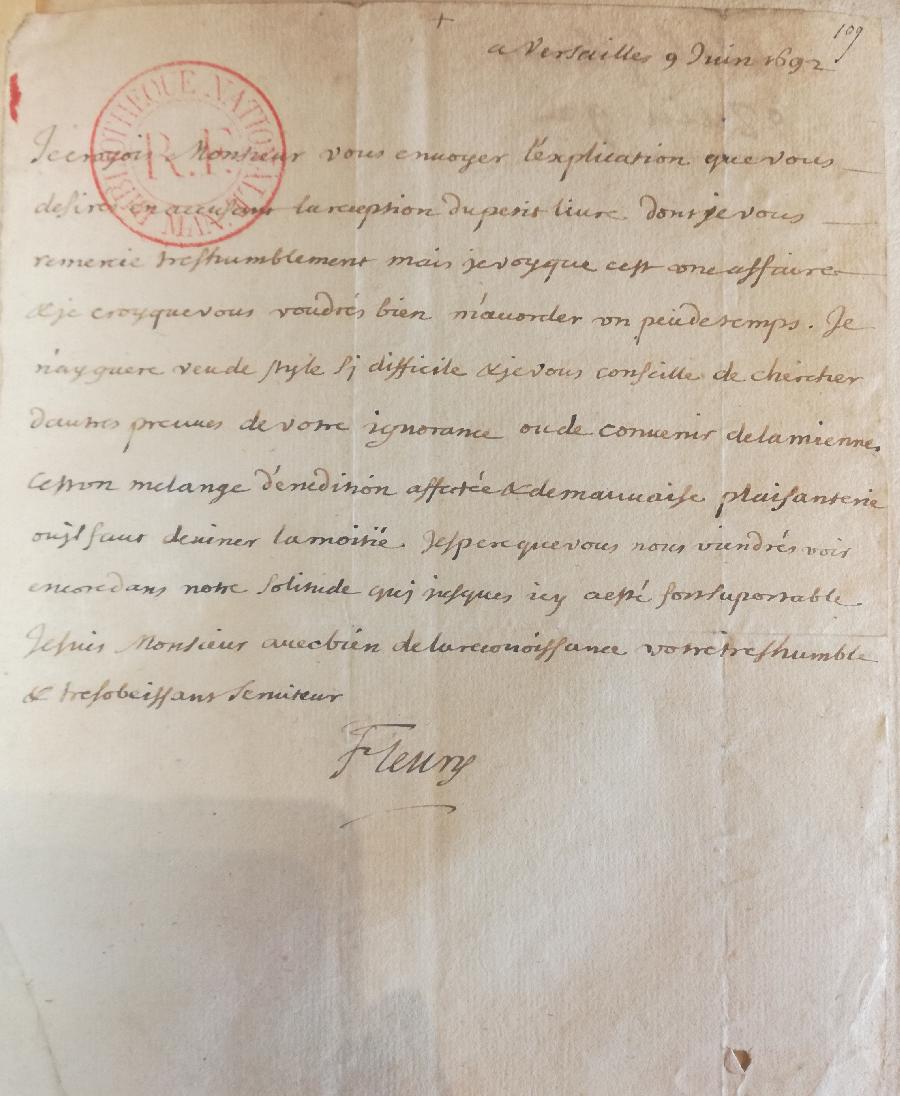 +
109
a Versailles 9 Juin 1692
Je croyois Monsieur vous enuoyer l'explication que vous
desirés en accusant la reception du petit liure dont je vous
remercie treshumblement mais je voy que cest vne affaire
& je croy que vous voudrés bien m'accorder vn peu de temps. Je
n'ay guere veu de style sj difficile & je vous conseille de chercher
d'autres preuues de votre ignorance ou de conuenir de la mienne.
Cest vn melange d'erudition affectée & de mauuaise plaisanterie
ou jl faut deuiner la moitié. Jespere que vous nous viendrés voir
encore dans notre solitude quj jusques icy a esté fort suportable.
Je suis Monsieur auec bien de la reconoissance votre treshumble
& tresobeissant seruiteur
Fleury
BIBLIOTHEQUE NATIONALE MAN.
R.F.